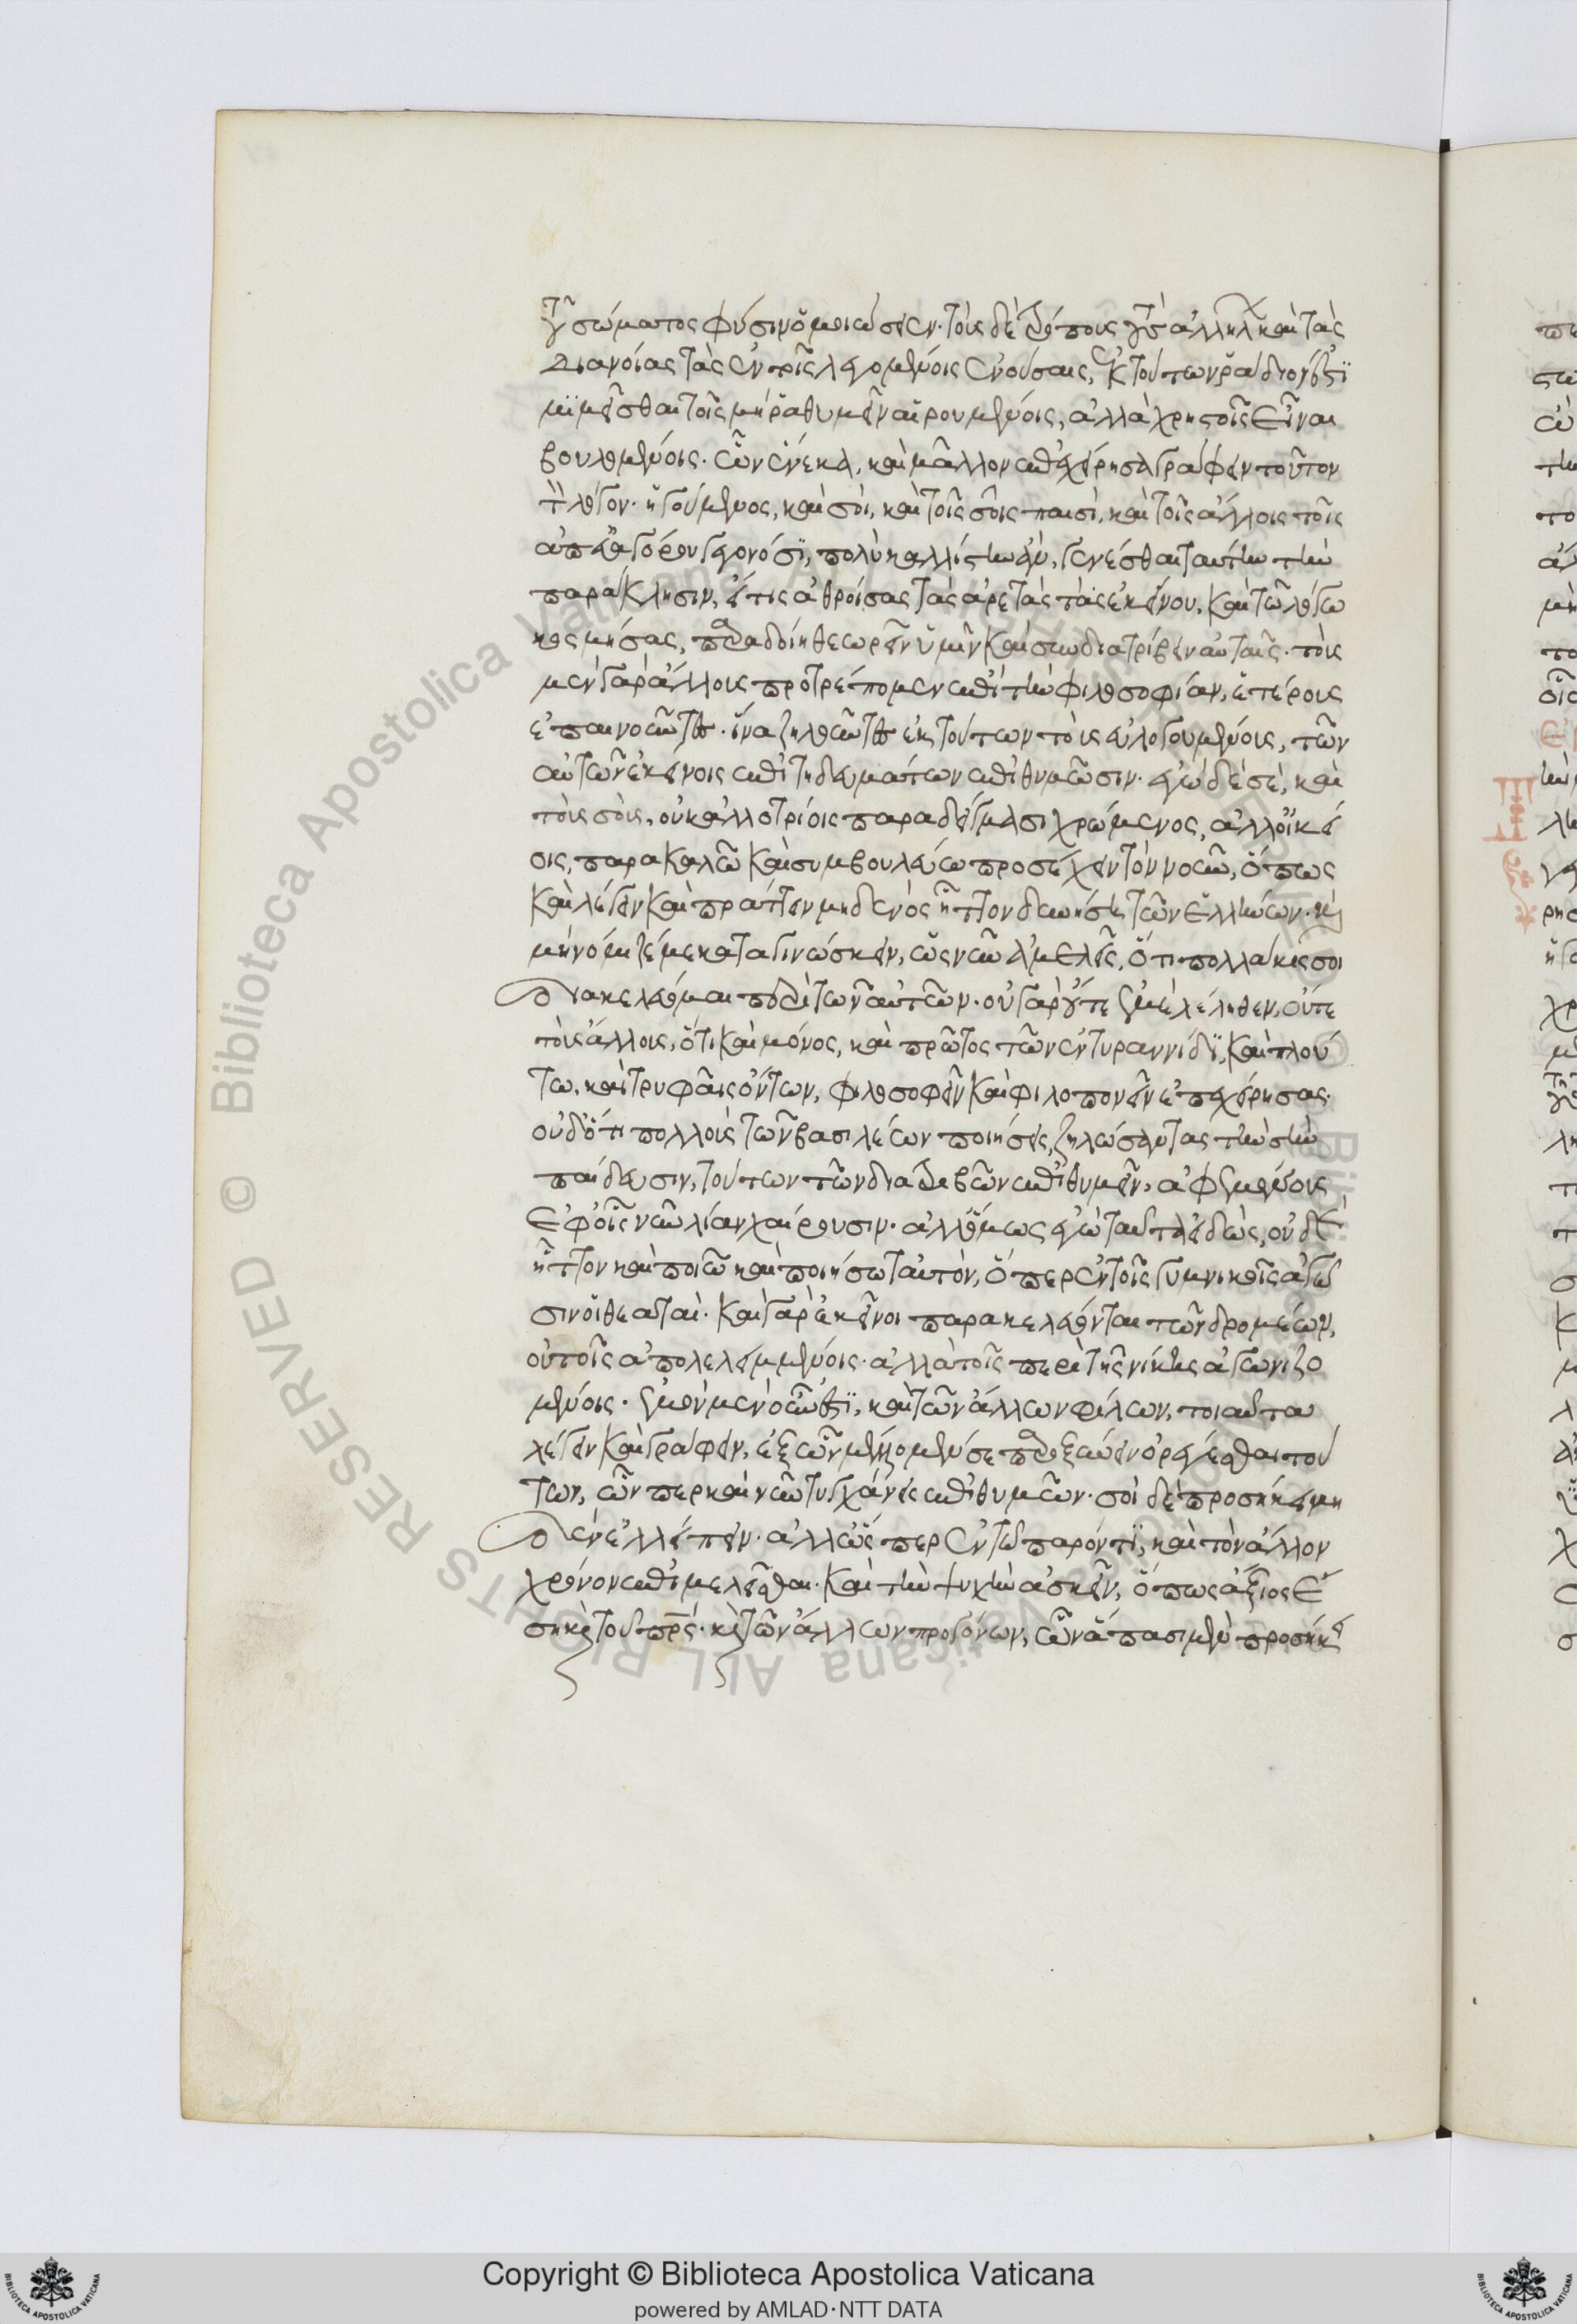 τοῦ σώματος φύσιν ὁμοιώσειεν· τοὺς δὲ τρόπους τοὺς ἀλλήλων καὶ τὰς
διανοίας τὰς ἐν τοῖς λεγομένοις ἐνούσας, ἐκ τούτων ῥάδιον ἐστὶ
μιμεῖσθαι τοῖς μὴ ῥαθυμεῖν αἱρουμένοις, ἀλλὰ χρηστοῖς εἶναι
βουλομένοις. ὧν ἕνεκα, καὶ μᾶλλον ἐπεχείρησα γράφειν τοῦτον
τὸν λόγον· ἡγούμενος, καὶ σοὶ, καὶ τοῖς σοῖς παισὶ, καὶ τοῖς ἄλλοις τοῖς
ἀπ' εὐαγόρου γεγονόσι, πολὺ καλλίστην ἂν, γενέσθαι ταύτην τὴν
παράκλησιν, εἴ τις ἀθροίσας τὰς ἀρετὰς τὰς ἐκείνου, καὶ τῶ λόγω
κοσμήσας, παραδοίη θεωρεῖν ὑμῖν καὶ συνδιατρίβειν αὐταῖς. τοὺς
μὲν γὰρ ἄλλους προτρέπομεν ἐπὶ τὴν φιλοσοφίαν, ἑτέρους
ἐπαινοῦντες. ἵνα ζηλοῦντες ἐκ τούτων τοὺς εὐλογουμένους, τῶν
αὐτῶν ἐκείνοις ἐπιτηδευμάτων ἐπιθυμῶσιν. ἐγὼ δέ σὲ, καὶ
τοὺς σοὺς, οὐκ ἀλλοτρίοις παραδείγμασι χρώμενος, ἀλλ' οἰκεί
οις, παρακαλῶ καὶ συμβουλεύω προσέχειν τὸν νοῦν, ὅπως
καὶ λέγειν καὶ πράττειν μηδενὸς ἧττον δυνήση τῶν ἑλλήνων. καὶ
μὴ νόμιζέ με καταγινώσκειν, ὡς νῦν ἀμελεῖς, ὅτι πολλάκις σοι
διακελεύομαι περὶ τῶν αὐτῶν. οὐ γὰρ οὔτε ἐμὲ λέληθεν, οὔτε
τοὺς ἄλλους, ὅτι καὶ μόνος, καὶ πρῶτος τῶν ἐν τυραννίδι, καὶ πλού
τω, καὶ τρυφαῖς ὄντων, φιλοσοφεῖν καὶ φιλοπονεῖν ἐπεχείρησας.
οὐδ' ὅτι πολλοὺς τῶν βασιλέων ποιήσεις, ζηλώσαντας τὴν σὴν
παίδευσιν, τούτων τῶν διατριβῶν ἐπιθυμεῖν, ἀφεμένους
ἐφ' οἷς νῦν λίαν χαίρουσιν. ἀλλ' ὅμως ἐγὼ ταῦτα εἰδὼς, οὐδὲν
ἧττον καὶ ποιῶ καὶ ποιήσω ταυτὸν, ὅπερ ἐν τοῖς γυμνικοῖς ἀγῶ
σιν οἱ θεαταί. καὶ γὰρ ἐκεῖνοι παρακελεύονται τῶν δρομέων,
οὐ τοῖς ἀπολελειμμένοις. ἀλλὰ τοῖς περὶ τῆς νίκης ἀγωνιζο
μένοις. ἐμὸν μὲν οὖν ἐστὶ, καὶ τῶν ἄλλων φίλων, τοιαῦτα
λέγειν καὶ γράφειν, ἐξ ὧν μέλλομέν σε παροξύνειν ὀρέγεσθαι τού
των, ὧν περ καὶ νῦν τυγχάνεις ἐπιθυμῶν. σοὶ δὲ προσήκει μη
δὲν ἐλλείπειν. ἀλλ' ὥσπερ ἐν τῶ παρόντι, καὶ τὸν ἄλλον
χρόνον ἐπιμελεῖσθαι. καὶ τὴν ψυχὴν ἀσκεῖν, ὅπως ἄξιος ἔ
ση καὶ τοῦ πρς. καὶ τῶν ἄλλων προγόνων, ὧν ἅπασι μὲν προσήκει